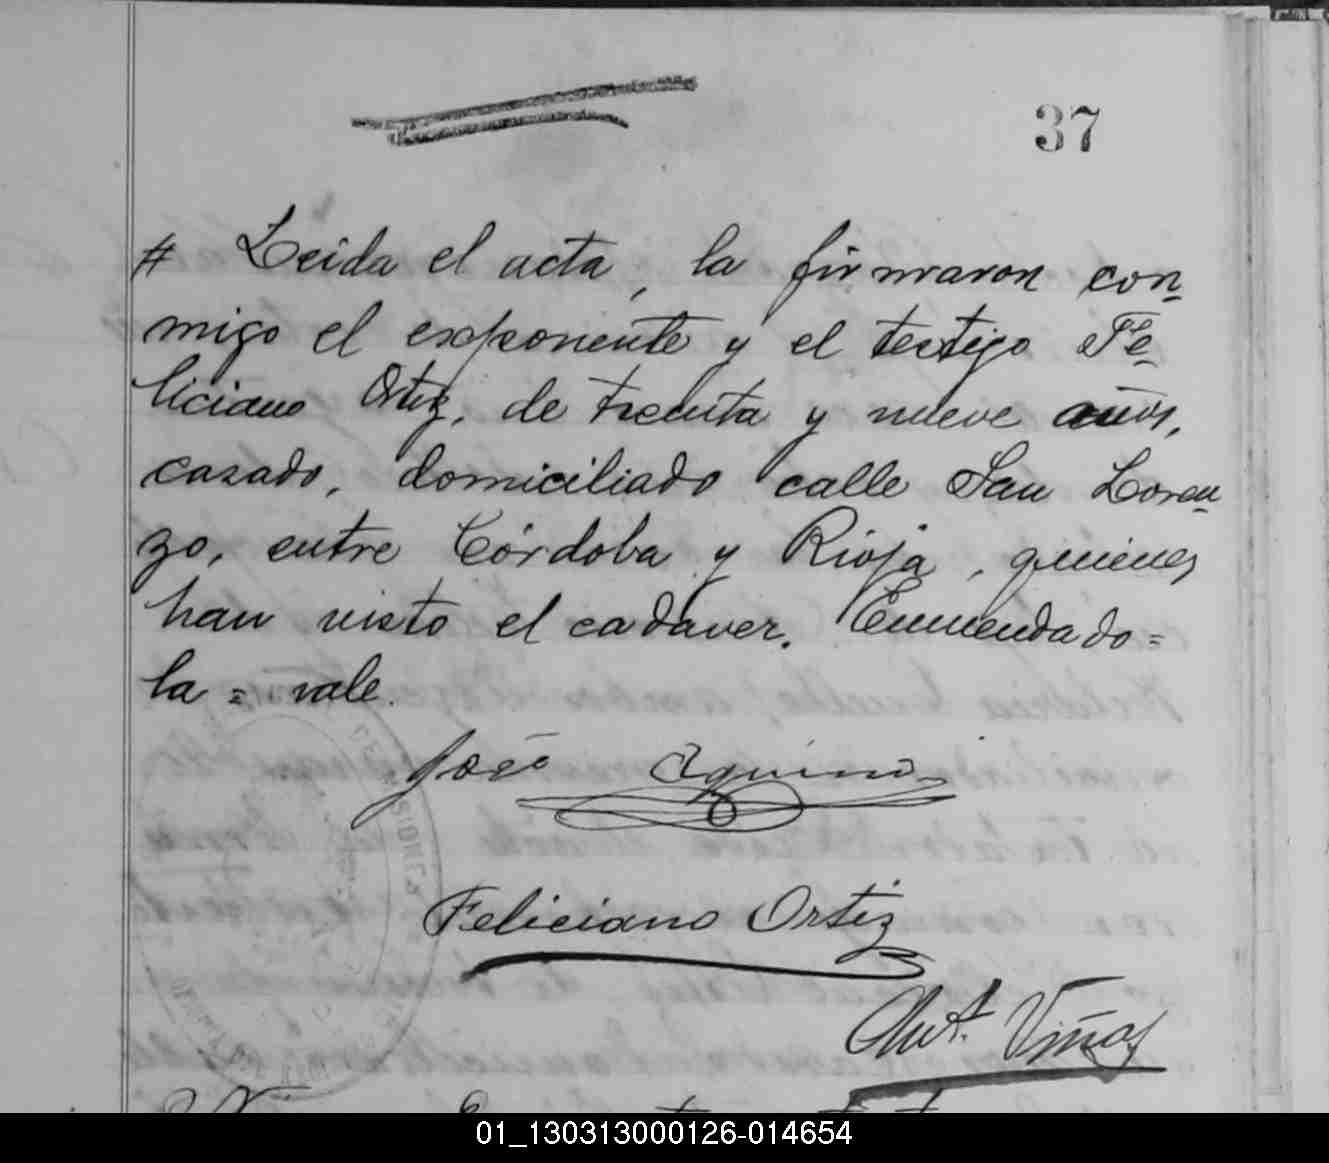 37
# Leida el acta, la firmaron con-
migo el exponente y el testigo Fe-
liciano Ortiz, de treinta y nueve años,
casado, domiciliado calle San Loren-
zo, entre Córdoba y Rioja, quienes
han visto el cadaver. Enmendado=
la=vale.
José Aquino
Feliciano Ortiz
Ant. Viñas
01_130313000126-014654